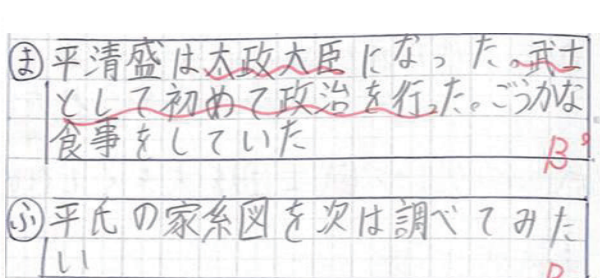 ま 平清盛は太政大臣になった。武士
として初めて政治を行った。ごうかな
食事をしていた
B°
ふ 平氏の家系図を次は調べてみた
い